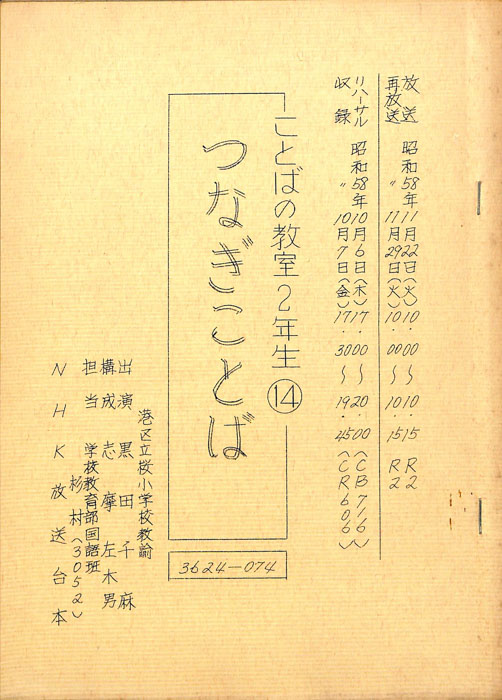 放送　昭和58年11月22日(火)10・00〜10・15　R2
再放送　〃　11月29日(火)10・00〜10・15　R2
リハーサル　昭和58年10月6日(木)17・00〜20・00(CB716)
収録　〃　10月7日(金)17・30〜19・45(CR606)
ことばの教室2年生⑭
つなぎことば
3624-074
港区立桜小学校教諭
出演　黒田千麻
構成　志摩左木男
担当　学校教育部国語班
杉村(3052)
NHK放送台本